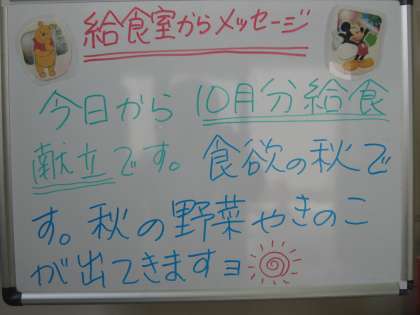 給食室からメッセージ
今日から10月分給食
献立です。食欲の秋で
す。秋の野菜やきのこ
が出てきますヨ